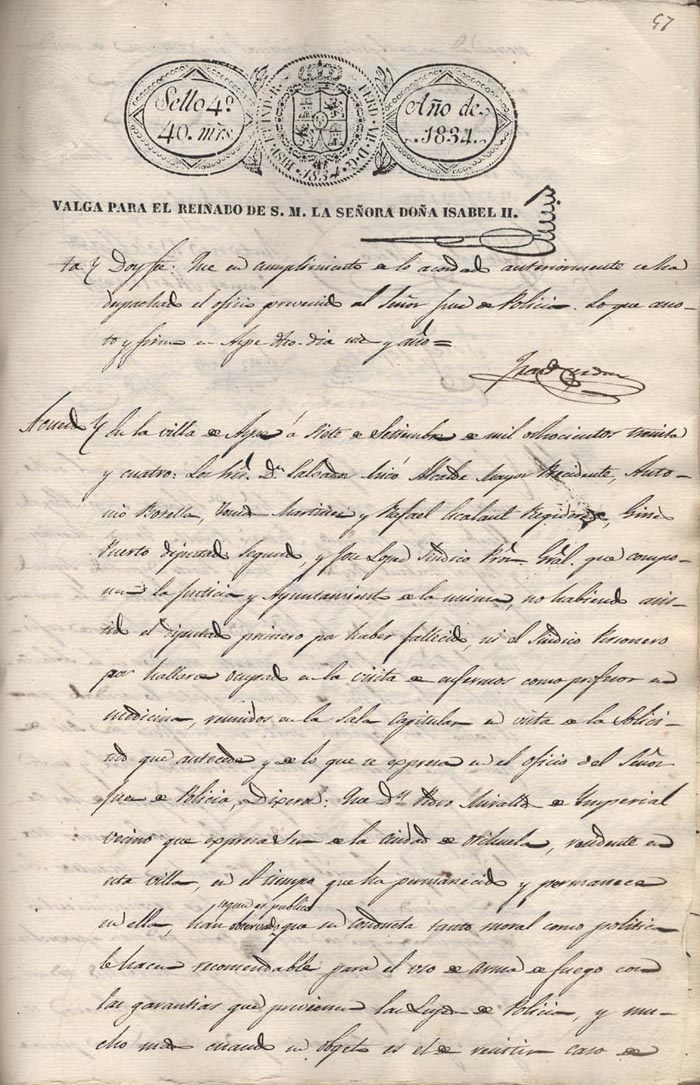 57
Sello 4º
40. mrs
HISP. ET IND. R. FERD. VII. D. G.
1834
Año de
1834.
VALGA PARA EL REINADO DE S. M. LA SEÑORA DOÑA ISABEL II.
ta Y Doy fe: Que en cumplimiento de lo acordado anteriormente se ha
despachado el oficio prevenido al Señor Juez de Policia. Lo que ano-
to y firmo en Aspe dho. dia mes y año =
Acuerdo Y En la villa de Aspe á siete de Setiembre de mil ochocientos treinta
y cuatro: Los Sres. Dn. Salvador Alcalde Mayor Presidente, Anto-
nio Botella, Martinez y Rafael Regidores, Gines
Puerto diputado segundo, y Jose Lopez Sindico Pror. Gral. que compo-
nen la Justicia y Ayuntamiento de la misma, no habiendo asis-
tido el diputado primero por haber fallecido, ni el Sindico Personero
por hallarse ocupado en la visita de enfermos como profesor en
medicina, reunidos en la Sala Capitular en vista de la Solici-
tud que antecede y de lo que se expresa en el oficio del Señor
Juez de Policia, Dixeron: Que Dn. Pedro Miralles de Imperial
vecino que expresa ser de la Ciudad de Orihuela, residente en
esta villa, en el tiempo que ha permanecido y permanece
segun es publico
en ella, han observado que su conducta tanto moral como politica
le hacen recomendable para el uso de arma de fuego con
las garantias que previenen las Leyes de Policia, y mu-
cho mas cuando su objeto es el de resistir caso de